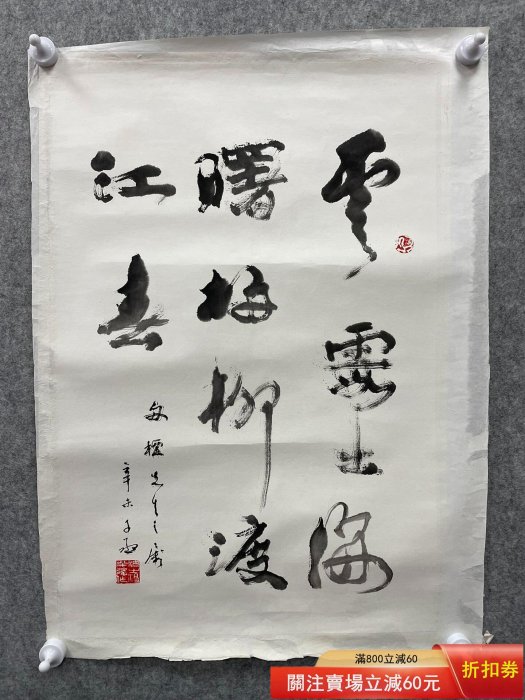 雲霞出海
曙梅柳渡
江春
先生
辛未
滿800立減60
關注賣場立減60元
折扣券